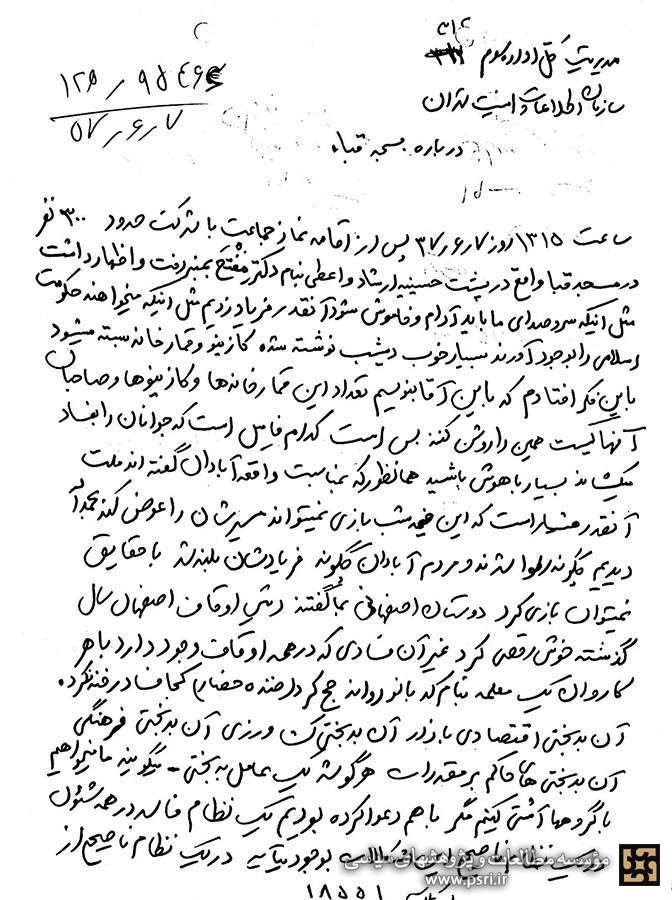 ۳۱۲
مدیریت کل اداره سوم ۳۱۲
۱۲۵ ر ۹۵۴۶۶
سازمان اطلاعات و امنیت تهران
۵۷ ر ۶ ر ۷
درباره مسجد قباء
ساعت ۱۳۱۵ روز ۷ ر ۶ ر ۳۷ پس از اقامه نماز جماعت با شرکت حدود ۳۰۰ نفر
در مسجد قبا واقع در پشت حسینیه ارشاد واعظی بنام دکتر مفتح بمنبر رفت و اظهار داشت
مثل اینکه سر و صدای ما باید آرام و خاموش شود آنقدر فریاد زدیم مثل اینکه میخواهند حکومت
اسلامی را بوجود آورند بسیار خوب دیشب نوشته شده کازینو و قمارخانه بسته میشود
باین فکر افتادم که باین آقا بنویسم تعداد این قمارخانه‌ها و کازینوها و صاحبان
آنها کیست همین را روشن کنند بس است کدام فامیل است که جوانان را بفساد
میکشاند بسیار باهوش باشید همانطور که بمناسبت واقعه آبادان گفته‌اند ملت
آنقدر هشیار است که این خیمه شب بازی نمیتواند مسیرشان را عوض کند بحمدالله
دیدیم چگونه رسوا شدند و مردم آبادان چگونه فریادشان بلند شد با حقایق
نمیتوان بازی کرد دوستان اصفهانی بما گفتند رئیس اوقاف اصفهان سال
گذشته خوش رقصی کرد غیر آن فسادی که در همه اوقاف وجود دارد با هر
کاروان یک معلمه بنام کد بانو روانه حج کردند خنده حضار کجا فساد رخنه نکرده
آن بدبختی اقتصادی بازار آن بدبختی کشاورزی آن بدبختی فرهنگی
آن بدبختی های حاکم بر مقدرات هر گوشه یک عامل بدبختی - میگویند ما میخواهیم
با گروهها آشتی کنیم مگر با هم دعوا کرده بودیم یک نظام فاسد در همه شئون
در یک نظام ناصحیح این بوجود می‌آید در یک نظام ناصحیح از
مؤسسه مطالعات و پژوهشهای سیاسی
www.psri.ir
۱۸۵۵۱